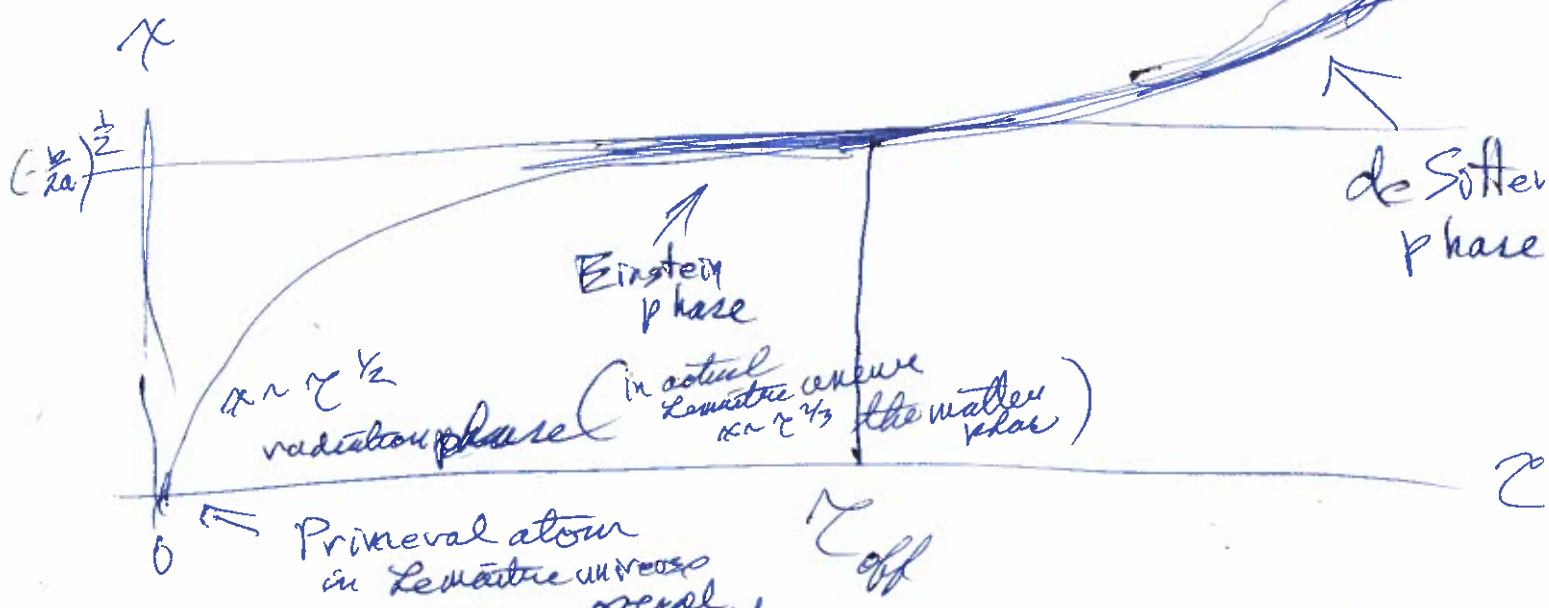 x
(-b/2a)^1/2
de Sitter
phase
Einstein
phase
x ~ τ^1/2
radiation phase
(in actual
Lemaitre universe
x ~ τ^2/3 the matter
phase)
τ
0
τ_off
Primeval atom
in Lemaitre universe